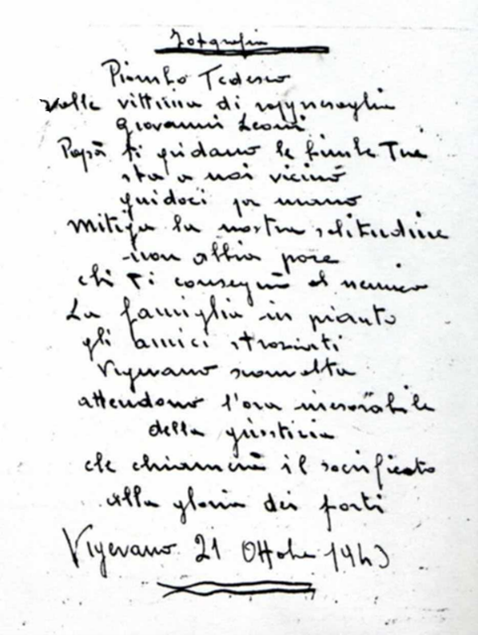 Fotografia
Piombo Tedesco
volle vittima di rappresaglia
Giovanni Leoni
Papà ti gridano le bimbe Tue
sta a noi vicino
guidaci per mano
Mitiga la nostra solitudine
non abbia pace
chi Ti consegnò al nemico
La famiglia in pianto
gli amici straziati
Vigevano
attendono l'ora inesorabile
della giustizia
che chiamerà il sacrificato
alla gloria dei forti
Vigevano 21 Ottobre 1943